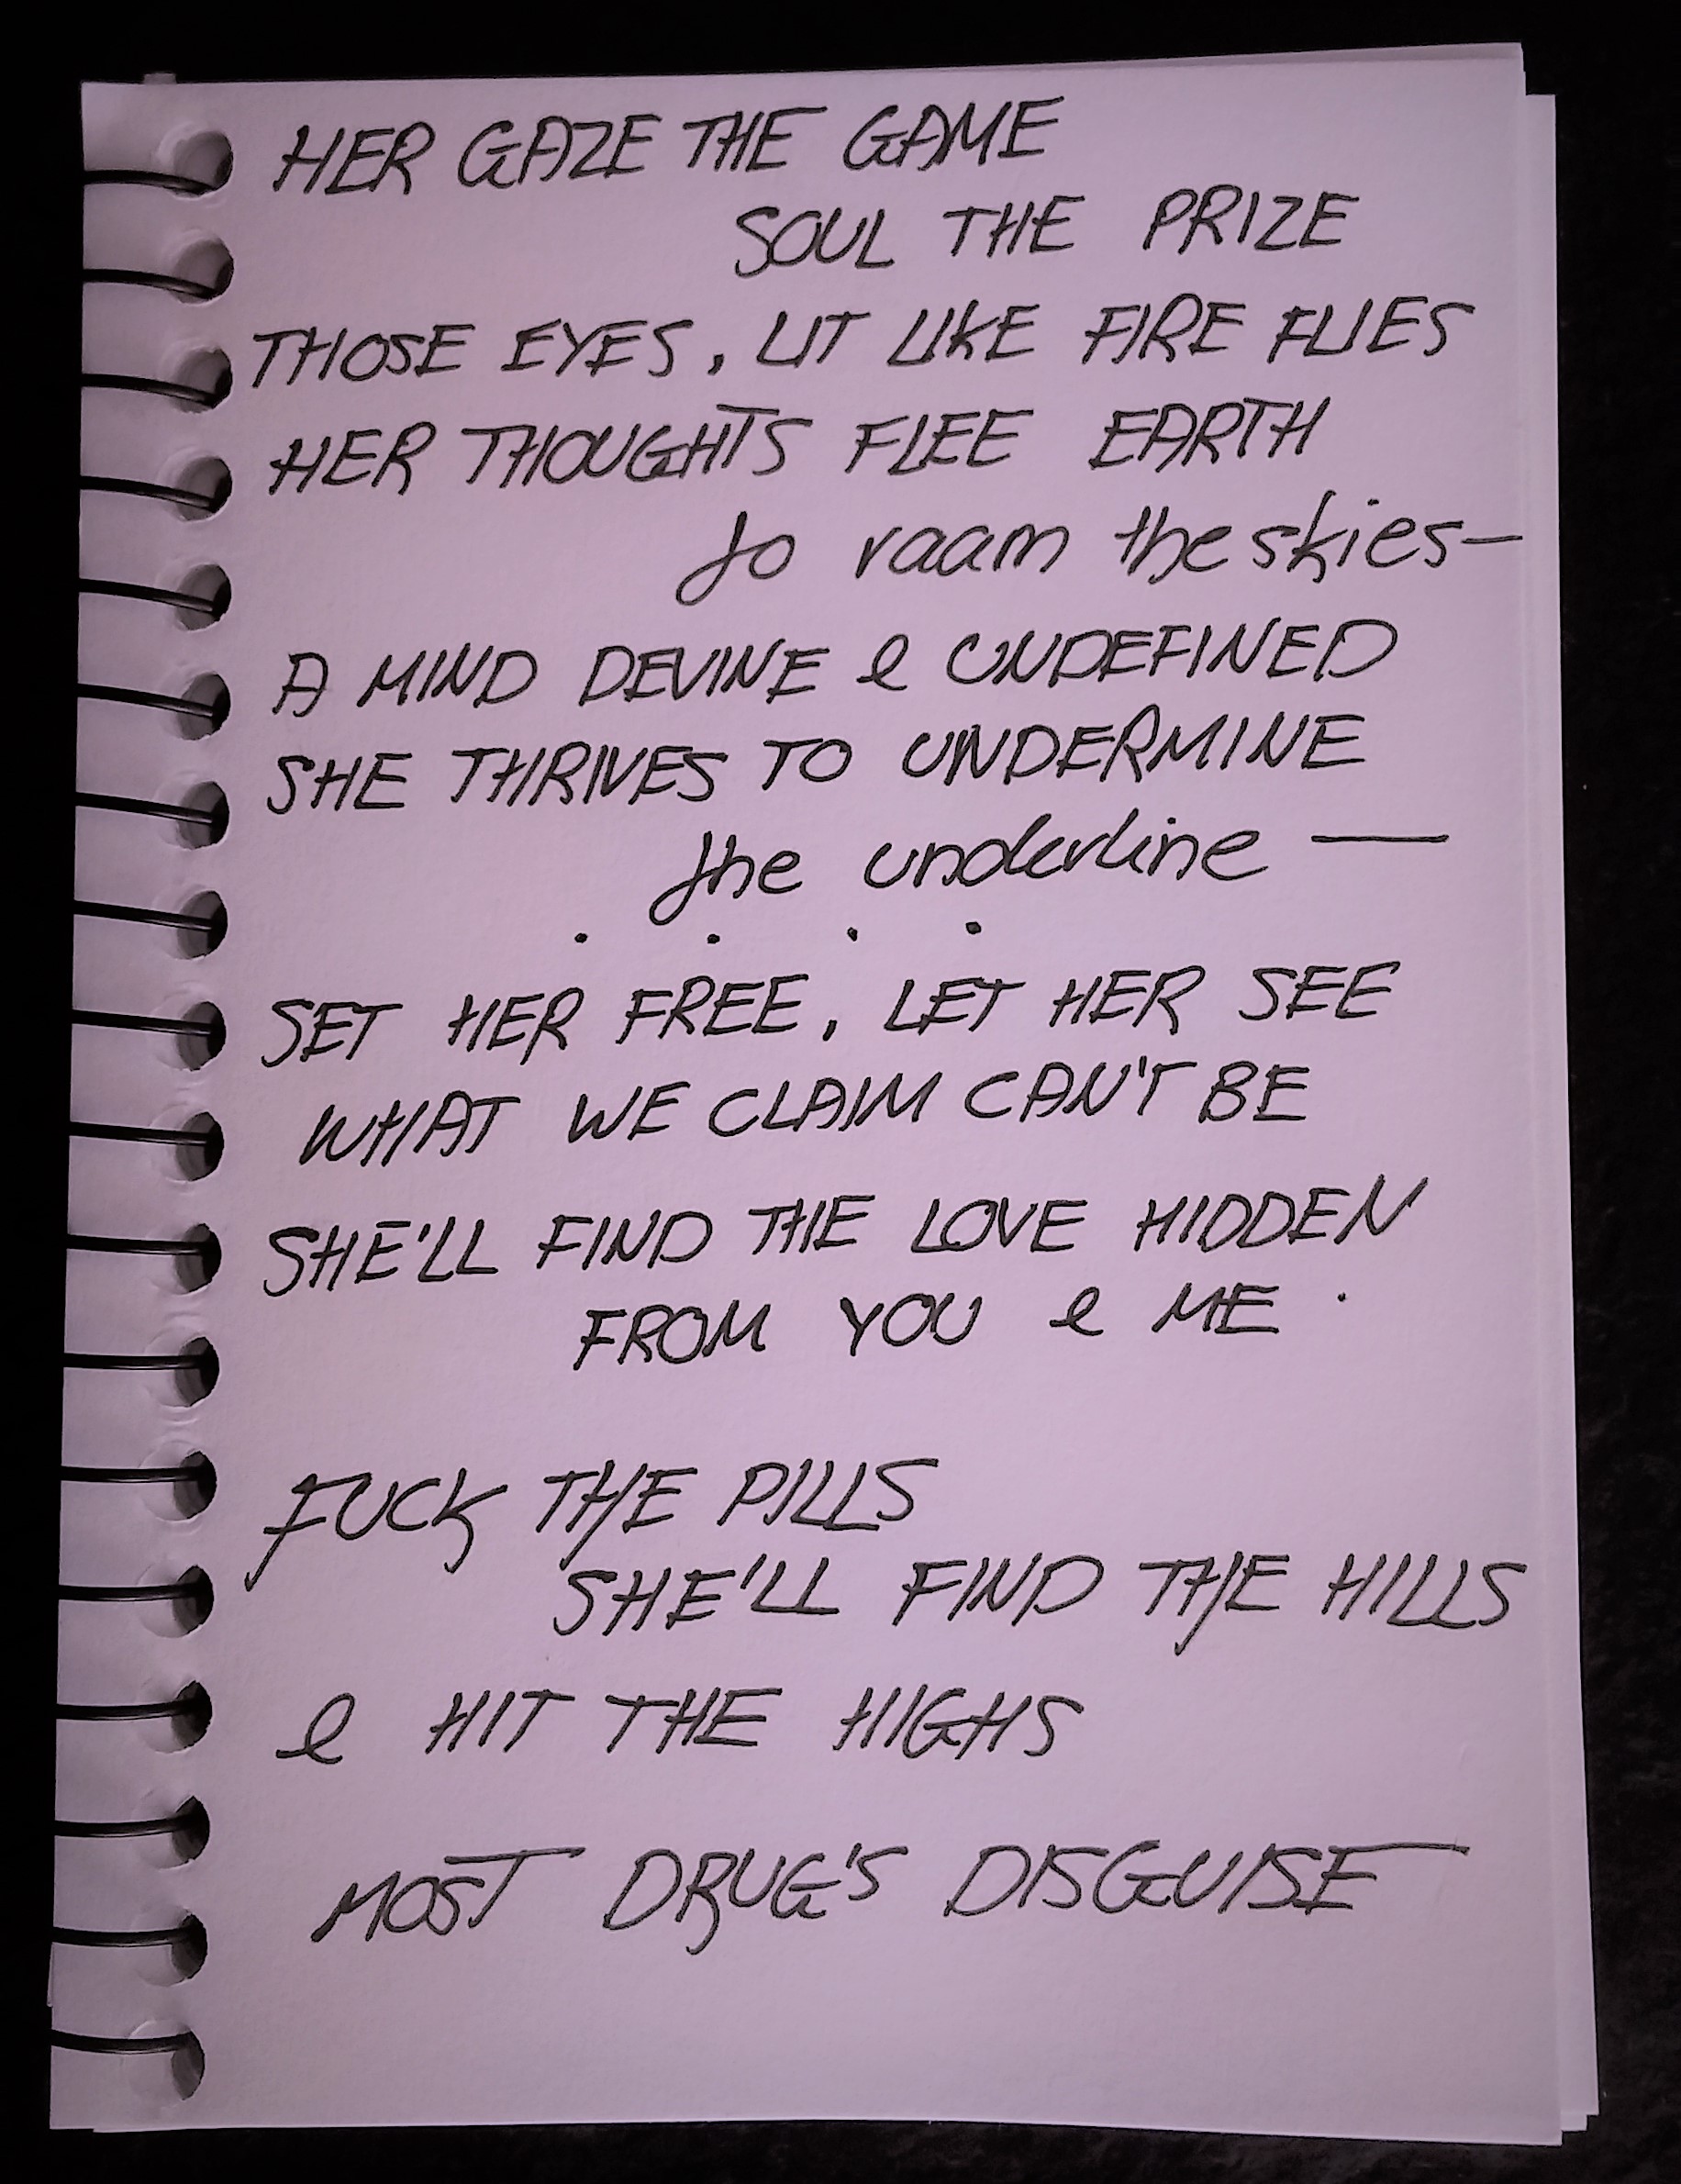 HER GAZE THE GAME
SOUL THE PRIZE
THOSE EYES, LIT LIKE FIRE FLIES
HER THOUGHTS FLEE EARTH
to roam the skies—
A MIND DEVINE & UNDEFINED
SHE THRIVES TO UNDERMINE
the underline —
. . . .
SET HER FREE, LET HER SEE
WHAT WE CLAIM CAN'T BE
SHE'LL FIND THE LOVE HIDDEN
FROM YOU & ME .
FUCK THE PILLS
SHE'LL FIND THE HILLS
& HIT THE HIGHS
MOST DRUG'S DISGUISE